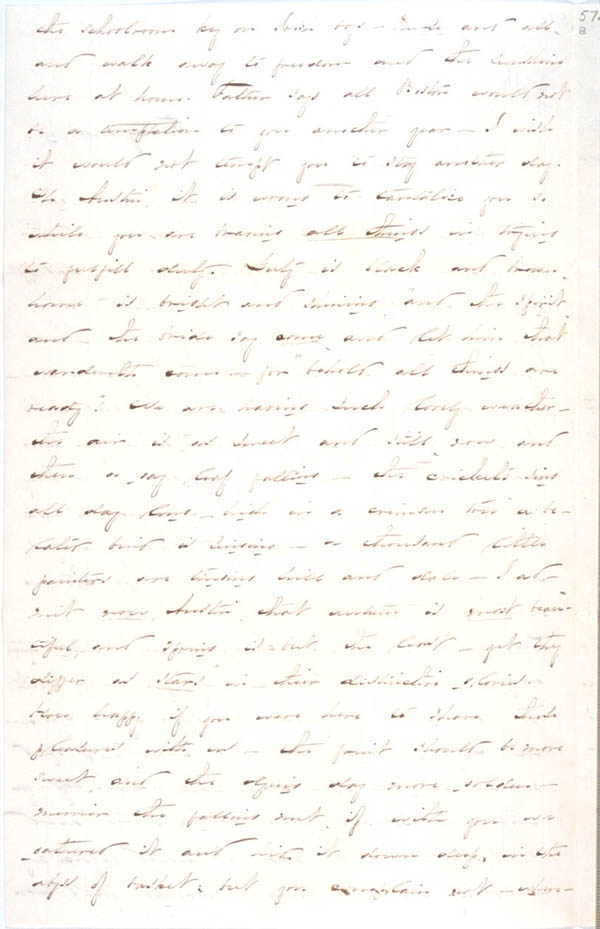 57
B
the schoolroom key on Irish boys – Aunt and all –
and walk away to freedom and the sunshine
here at home. Father says all Boston would not
be a temptation to you another year – I wish
it would not tempt you to stay another day.
Oh Austin, it is wrong to tantalize you so
while you are braving all things in trying
to fulfill duty. Duty is black and brown –
home is bright and shining, "and the spirit
and the bride say come, and let him that
wandereth come – for "behold all things are
ready"! We are having such lovely weather –
the air is as sweet and still, now and
then a gay leaf falling – the crickets sing
all day long – high in a crimson tree a be-
lated bird is singing – a thousand little
painters are tingeing hill and dale – I ad-
mit now, Austin, that autumn is most beau-
tiful, and spring is but the least – yet they
"differ as stars" in their distinctive glories –
How happy if you were here to share these
pleasures with us – the fruit should be more
sweet, and the dying day more golden –
merrier the falling nut, if with you we
gathered it and hid it down deep in the
abyss of basket; but you complain not – wher-